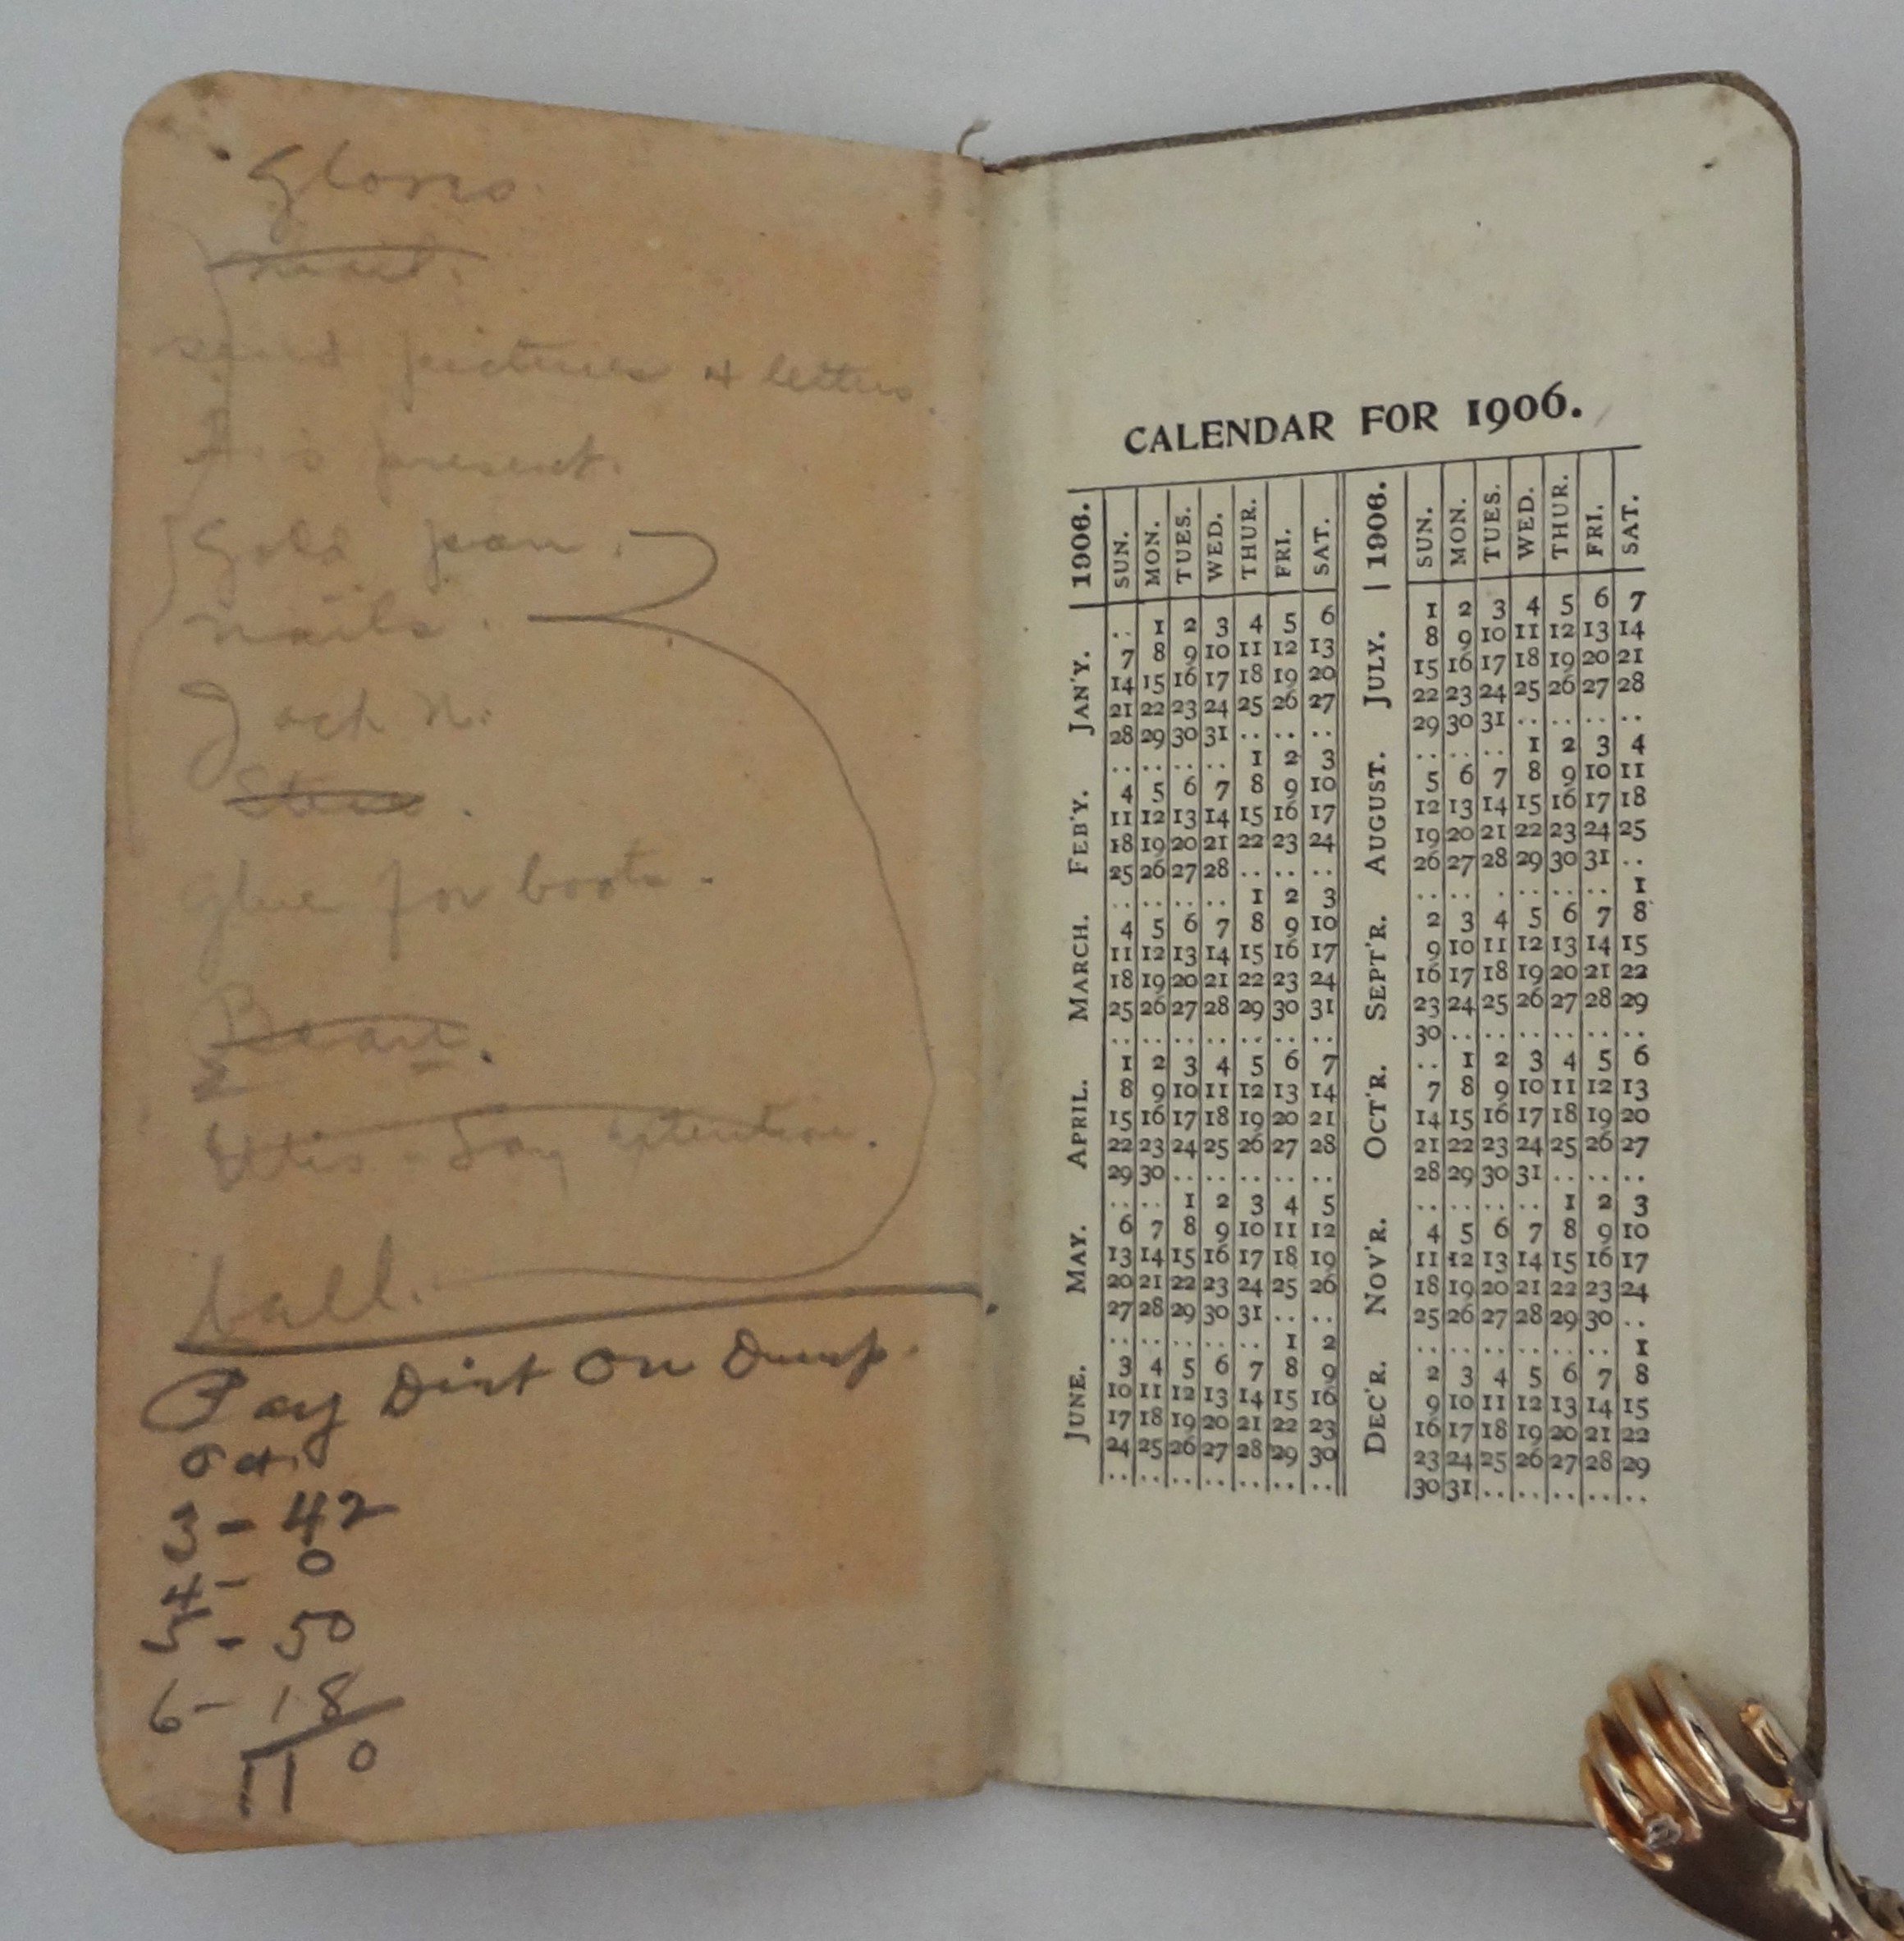 Gloves.
mail.
send pictures & letters.
present.
Gold pan.
nails.
Jack N.
glue for boots.
ball.
Pay Dirt On Dump.
Oct.
3 - 42
4 - 0
5 - 50
6 - 18
110
CALENDAR FOR 1906.
1906. SUN. MON. TUES. WED. THUR. FRI. SAT.
JAN'Y.
.. 1 2 3 4 5 6
7 8 9 10 11 12 13
14 15 16 17 18 19 20
21 22 23 24 25 26 27
28 29 30 31 .. .. ..
FEB'Y.
.. .. .. .. 1 2 3
4 5 6 7 8 9 10
11 12 13 14 15 16 17
18 19 20 21 22 23 24
25 26 27 28 .. .. ..
MARCH.
.. .. .. .. 1 2 3
4 5 6 7 8 9 10
11 12 13 14 15 16 17
18 19 20 21 22 23 24
25 26 27 28 29 30 31
.. .. .. .. .. .. ..
APRIL.
1 2 3 4 5 6 7
8 9 10 11 12 13 14
15 16 17 18 19 20 21
22 23 24 25 26 27 28
29 30 .. .. .. .. ..
MAY.
.. .. 1 2 3 4 5
6 7 8 9 10 11 12
13 14 15 16 17 18 19
20 21 22 23 24 25 26
27 28 29 30 31 .. ..
JUNE.
.. .. .. .. .. 1 2
3 4 5 6 7 8 9
10 11 12 13 14 15 16
17 18 19 20 21 22 23
24 25 26 27 28 29 30
.. .. .. .. .. .. ..
1906. SUN. MON. TUES. WED. THUR. FRI. SAT.
JULY.
1 2 3 4 5 6 7
8 9 10 11 12 13 14
15 16 17 18 19 20 21
22 23 24 25 26 27 28
29 30 31 .. .. .. ..
AUGUST.
.. .. .. 1 2 3 4
5 6 7 8 9 10 11
12 13 14 15 16 17 18
19 20 21 22 23 24 25
26 27 28 29 30 31 ..
SEPT'R.
.. .. .. .. .. .. 1
2 3 4 5 6 7 8
9 10 11 12 13 14 15
16 17 18 19 20 21 22
23 24 25 26 27 28 29
30 .. .. .. .. .. ..
OCT'R.
.. 1 2 3 4 5 6
7 8 9 10 11 12 13
14 15 16 17 18 19 20
21 22 23 24 25 26 27
28 29 30 31 .. .. ..
NOV'R.
.. .. .. .. 1 2 3
4 5 6 7 8 9 10
11 12 13 14 15 16 17
18 19 20 21 22 23 24
25 26 27 28 29 30 ..
DEC'R.
.. .. .. .. .. .. 1
2 3 4 5 6 7 8
9 10 11 12 13 14 15
16 17 18 19 20 21 22
23 24 25 26 27 28 29
30 31 .. .. .. .. ..